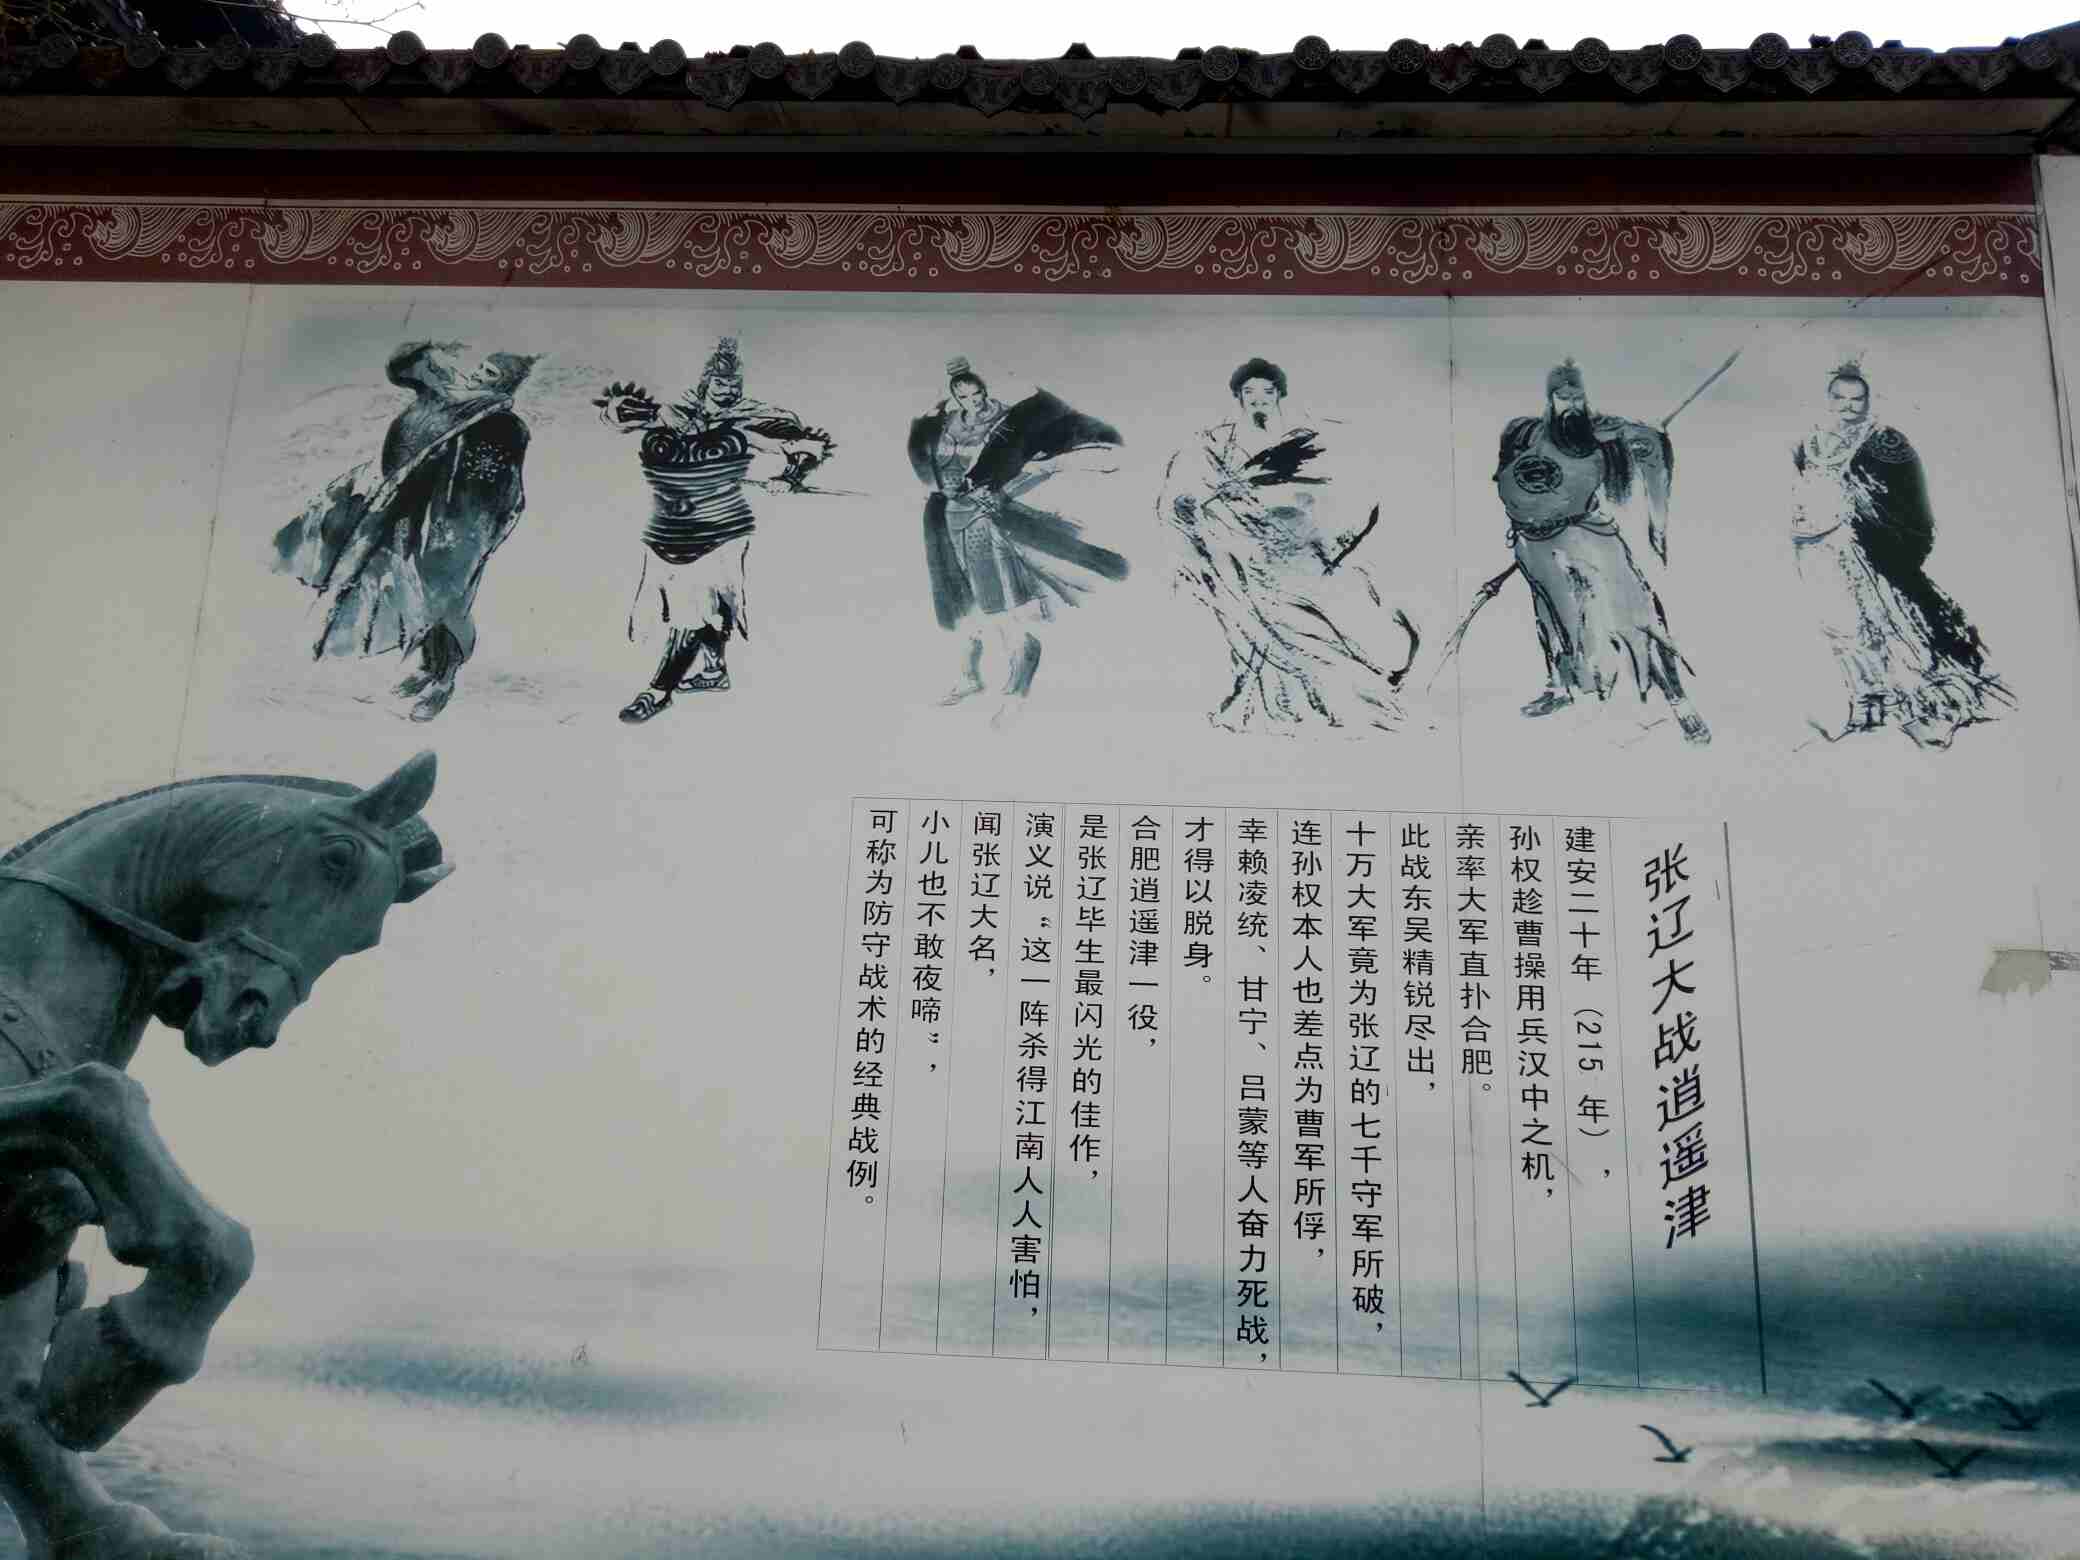 张辽大战逍遥津
建安二十年（215 年），
孙权趁曹操用兵汉中之机，
亲率大军直扑合肥。
此战东吴精锐尽出，
十万大军竟为张辽的七千守军所破，
连孙权本人也差点为曹军所俘，
幸赖凌统、甘宁、吕蒙等人奋力死战，
才得以脱身。
合肥逍遥津一役，
是张辽毕生最闪光的佳作，
演义说“这一阵杀得江南人人害怕，
闻张辽大名，
小儿也不敢夜啼”，
可称为防守战术的经典战例。